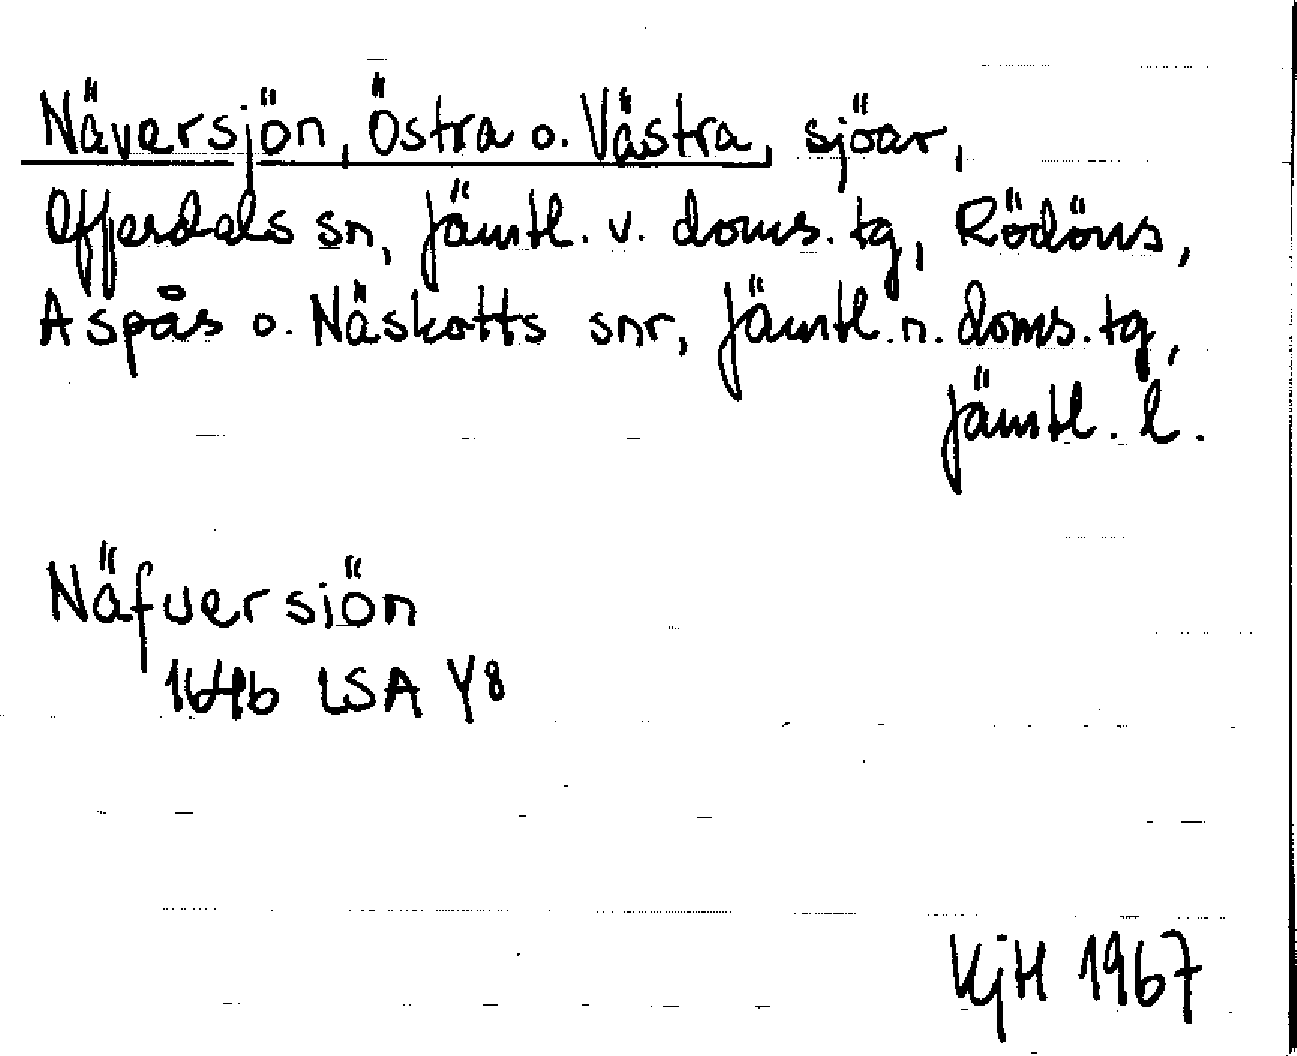 Näversjön, Östra o. Västra, sjöar,
Offerdals sn, Jämtl. v. doms. tg, Rödöns,
Aspås o. Näskotts snr, Jämtl. n. doms. tg,
Jämtl. l.
Näfuersiön
1646 LSA Y8
KjH 1967